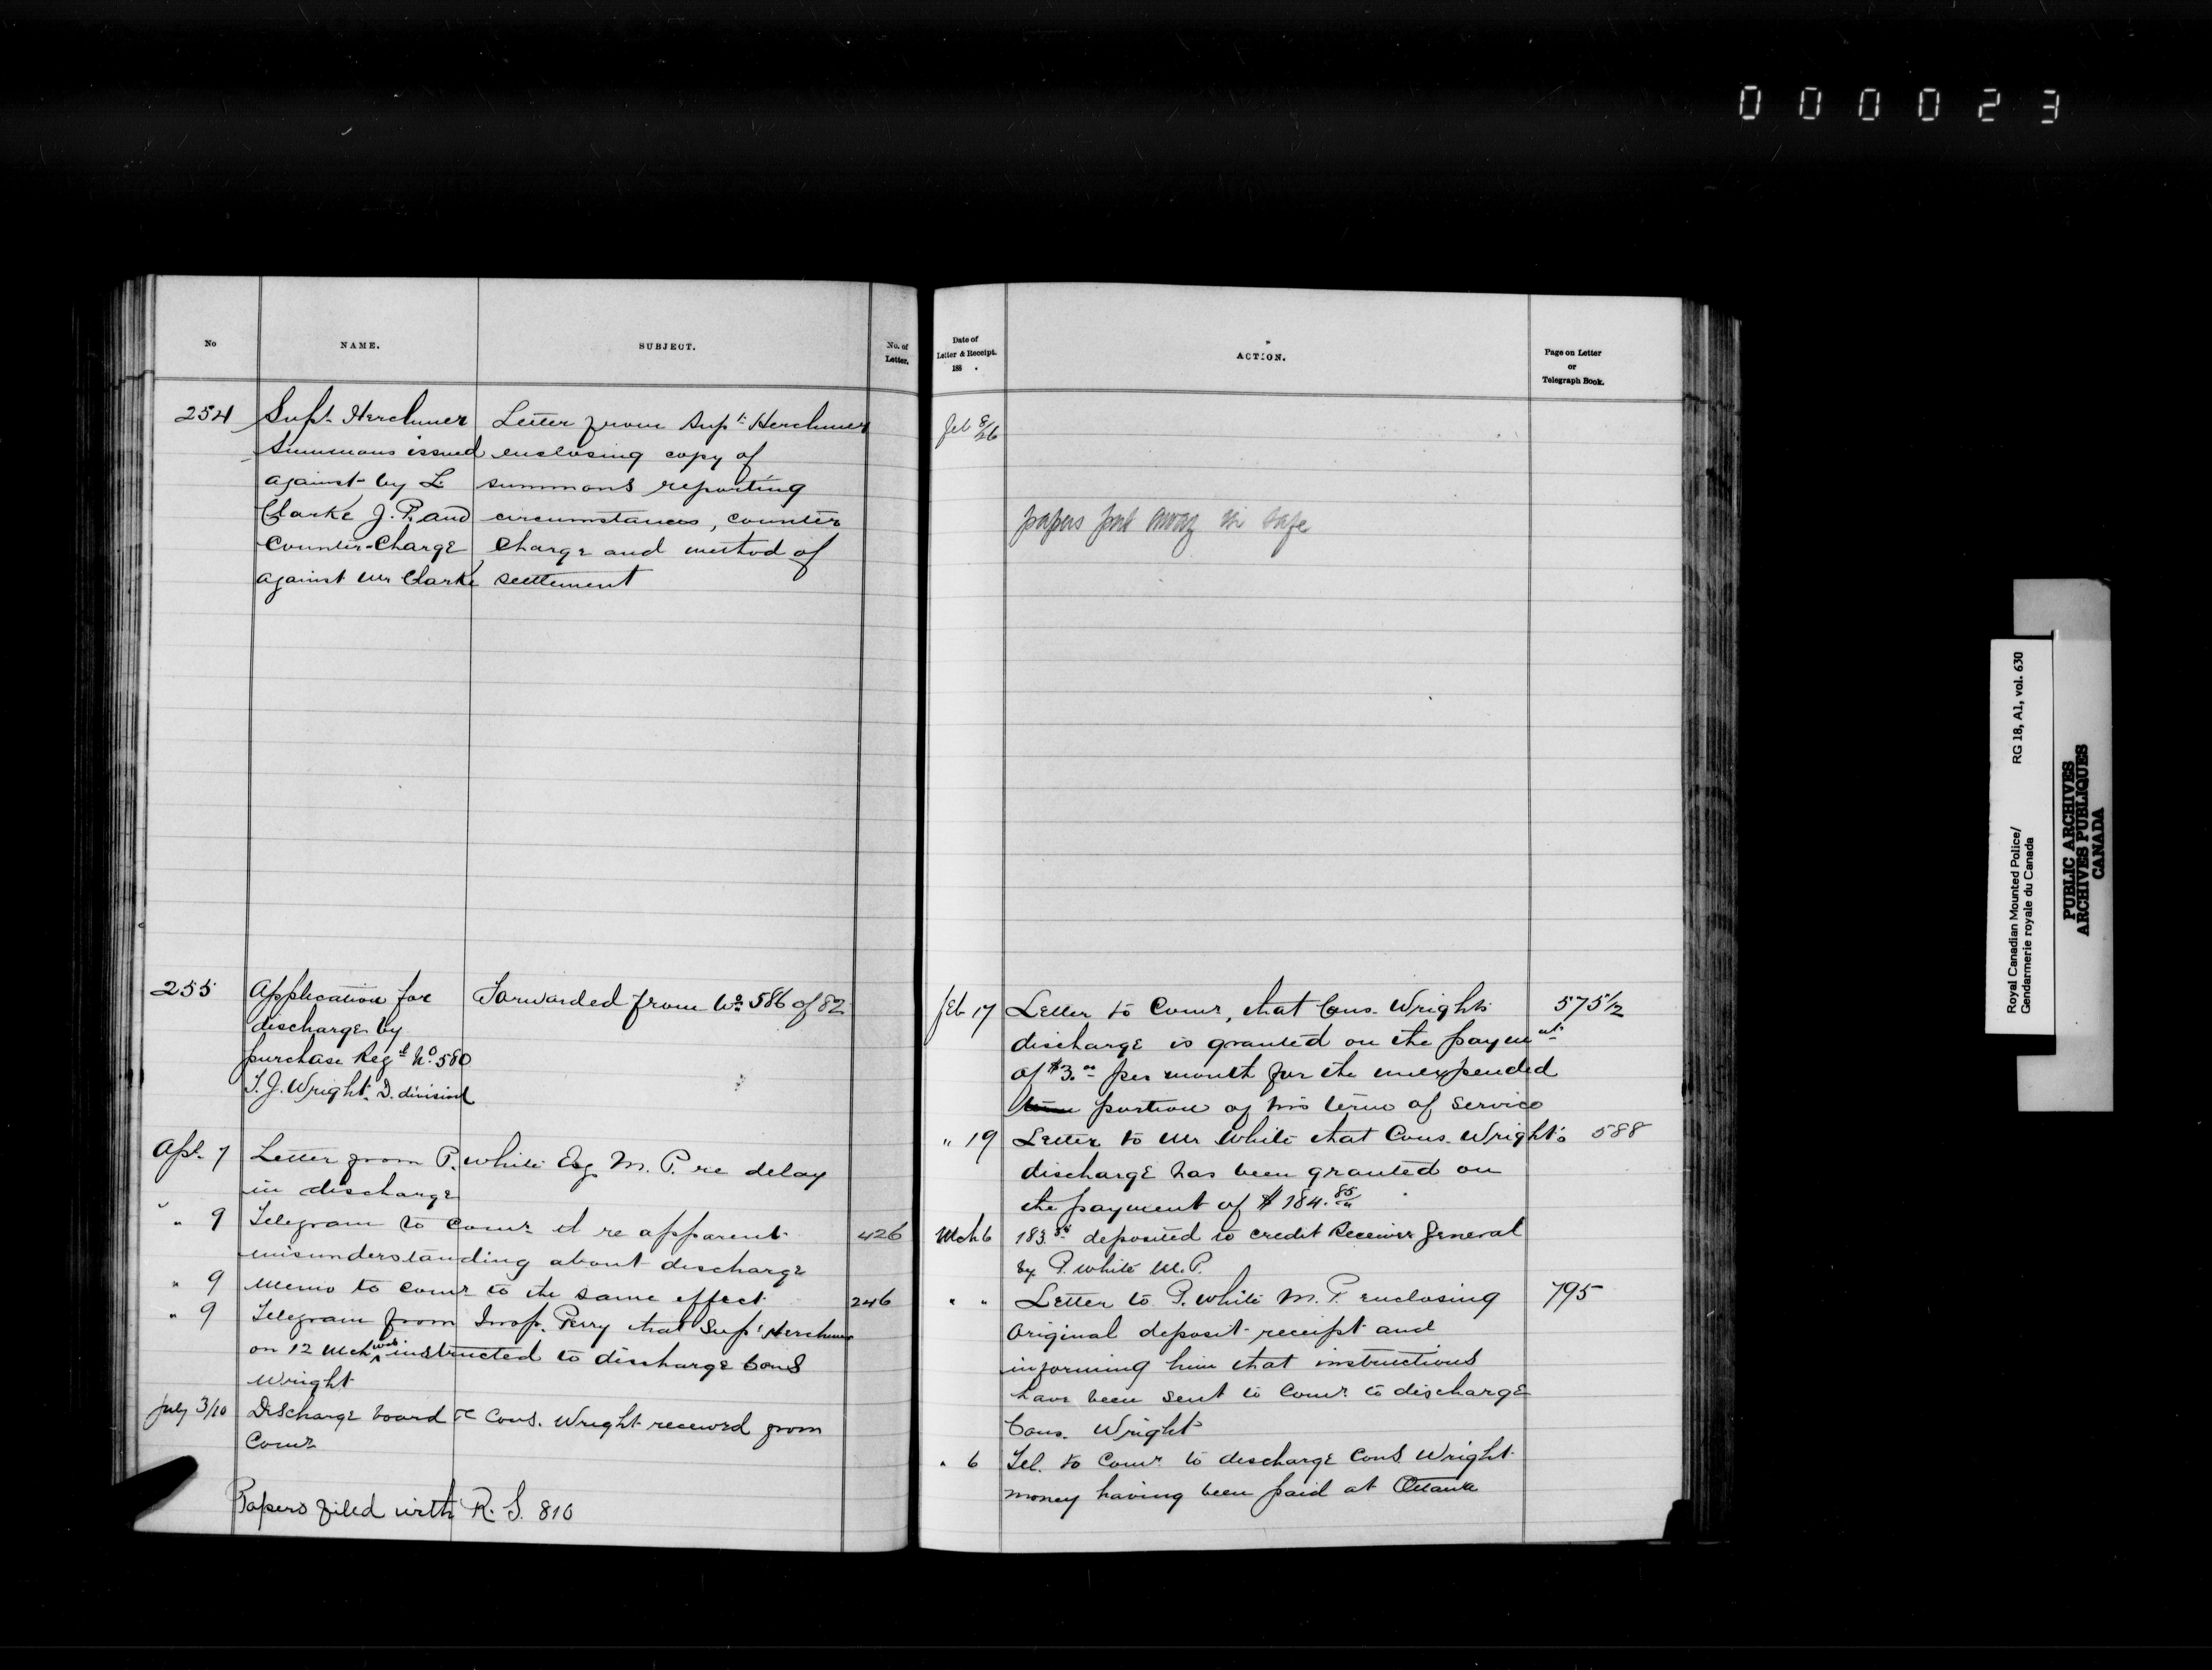 000023
No
NAME.
SUBJECT.
No. of
Letter.
254
Supt. Herchmer
Summons issued
against by L
Clarke J.P. and
Counter-Charge
against Mr Clarke
Letter from Supt. Herchmer
enclosing copy of
summons reporting
circumstances, counter
charge and method of
settlement
255
Application for
discharge by
purchase Regtl No. 580
T.J. Wright. D. division
Forwarded from No. 586 of 82
Apl. 7
Letter from P. White Esq M.P. re delay
in discharge
" 9
Telegram to Comr. re apparent
misunderstanding about discharge
426
" 9
Memo to Comr to the same effect
246
" 9
Telegram from Insp. Perry that Supt Herchmer
on 12 Mch was instructed to discharge Cons
Wright
July 3/10
Discharge board re Cons. Wright received from
Comr
Papers filed with R.S. 810
Date of
Letter & Receipt.
188 .
ACTION.
Page on Letter
or
Telegraph Book.
Feb 8/26
papers put away in safe
Feb 17
Letter to Comr, that Cons. Wrights
discharge is granted on the payment
of $3.00 per month for the unexpended
portion of his term of service
575 1/2
" 19
Letter to Mr White that Cons. Wright's
discharge has been granted on
the payment of $184.85
588
Mch 6
deposited to credit Receiver General
by P. White M.P.
" "
Letter to P. White M.P. enclosing
original deposit receipt and
informing him that instructions
have been sent to Comr. to discharge
Cons. Wright
795
" 6
Tel. to Comr. to discharge Cons Wright
money having been paid at Ottawa
Royal Canadian Mounted Police/
Gendarmerie royale du Canada
RG 18, A1, vol. 630
PUBLIC ARCHIVES
ARCHIVES PUBLIQUES
CANADA